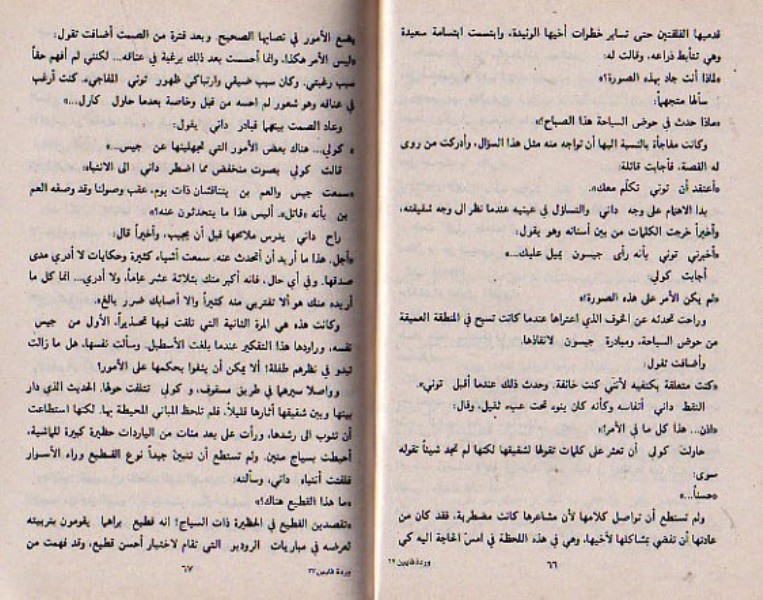 قدميها القلقتين حتى تساير خطوات أخيها الوئيدة، وابتسمت ابتسامة سعيدة
وهي تتأبط ذراعه، وقالت له:
«لماذا أنت جاد بهذه الصورة؟»
سألها متجهماً:
«ماذا حدث في حوض السباحة هذا الصباح؟»
وكانت مفاجأة بالنسبة اليها أن تواجه منه مثل هذا السؤال، وأدركت من روى
له القصة، فأجابت قائلة:
«أعتقد أن توني تكلّم معك».
بدا الاهتمام على وجه داني والتساؤل في عينيه عندما نظر الى وجه شقيقته،
وأخيراً خرجت الكلمات من بين أسنانه وهو يقول:
«أخبرني توني بأنه رأى جيسون يميل عليك...»
أجابت كولي
«لم يكن الأمر على هذه الصورة!»
وراحت تحدثه عن الخوف الذي اعتراها عندما كانت تسبح في المنطقة العميقة
من حوض السباحة، ومبادرة جيسون لانقاذها.
وأضافت تقول:
«كنت متعلقة بكتفيه لأنني كنت خائفة، وحدث ذلك عندما أقبل توني».
التقط داني أنفاسه وكأنه كان ينوء تحت عبء ثقيل، وقال:
«اذن... هذا كل ما في الأمر!»
حاولت كولي أن تعثر على كلمات تقولها لشقيقها لكنها لم تجد شيئاً تقوله
سوى:
«حسناً...»
ولم تستطع أن تواصل كلامها لأن مشاعرها كانت مضطربة، فقد كان من
عادتها أن تفضي بمشاكلها لأخيها، وهي في هذه اللحظة في امسّ الحاجة اليه كي
٦٦
وردة قايين
يضع الأمور في نصابها الصحيح. وبعد فترة من الصمت أضافت تقول:
«ليس الأمر هكذا، وانما أحسست بعد ذلك برغبة في عناقه... لكنني لم أفهم حقاً
سبب رغبتي. وكان سبب ضيقي وارتباكي ظهور توني المفاجيء. كنت أرغب
في عناقه وهو شعور لم احسه من قبل وخاصة بعدما حاول كارل...»
وعاد الصمت بينهما فبادر داني يقول:
« كولي... هناك بعض الأمور التي تجهلينها عن جيس...»
قالت كولي بصوت منخفض مما اضطر داني الى الانتباه:
«سمعت جيس والعم بن يتناقشان ذات يوم، عقب وصولنا وقد وصفه العم
بن بأنه «قاتل». أليس هذا ما يتحدثون عنه؟»
راح داني يدرس ملامحها قبل أن يجيب، وأخيراً قال:
«أجل. هذا ما أريد أن أتحدث عنه. سمعت أشياء كثيرة وحكايات لا أدري مدى
صدقها. وفي أي حال، فانه أكبر منك بثلاثة عشر عاماً، ولا أدري... انما كل ما
أريده منك هو ألا تقتربي منه كثيراً والا أصابك ضرر بالغ».
وكانت هذه هي المرة الثانية التي تلقت فيها تحذيراً، الأول من جيس
نفسه، وراودها هذا التفكير عندما بلغت الأسطبل. وسألت نفسها، هل ما زالت
تبدو في نظرهم طفلة؟ ألا يمكن أن يثقوا بحكمها على الأمور؟
وواصلا سيرهما في طريق مسقوف، و كولي تتلفت حولها. الحديث الذي دار
بينها وبين شقيقها أثارها قليلاً، فلم تلحظ المباني المحيطة بها. لكنها استطاعت
أن تثوب الى رشدها، ورأت على بعد مئات من الياردات حظيرة كبيرة للماشية،
أحيطت بسياج متين. ولم تستطع أن تتبين جيداً نوع القطيع وراء الأسوار
فلفتت أنتباه داني، وسألته:
«ما هذا القطيع هناك؟»
«تقصدين القطيع في الحظيرة ذات السياج؟ انه قطيع براهما يقومون بتربيته
لعرضه في مباريات الروديو التي تقام لاختيار أحسن قطيع، وقد فهمت من
٦٧
وردة قايين